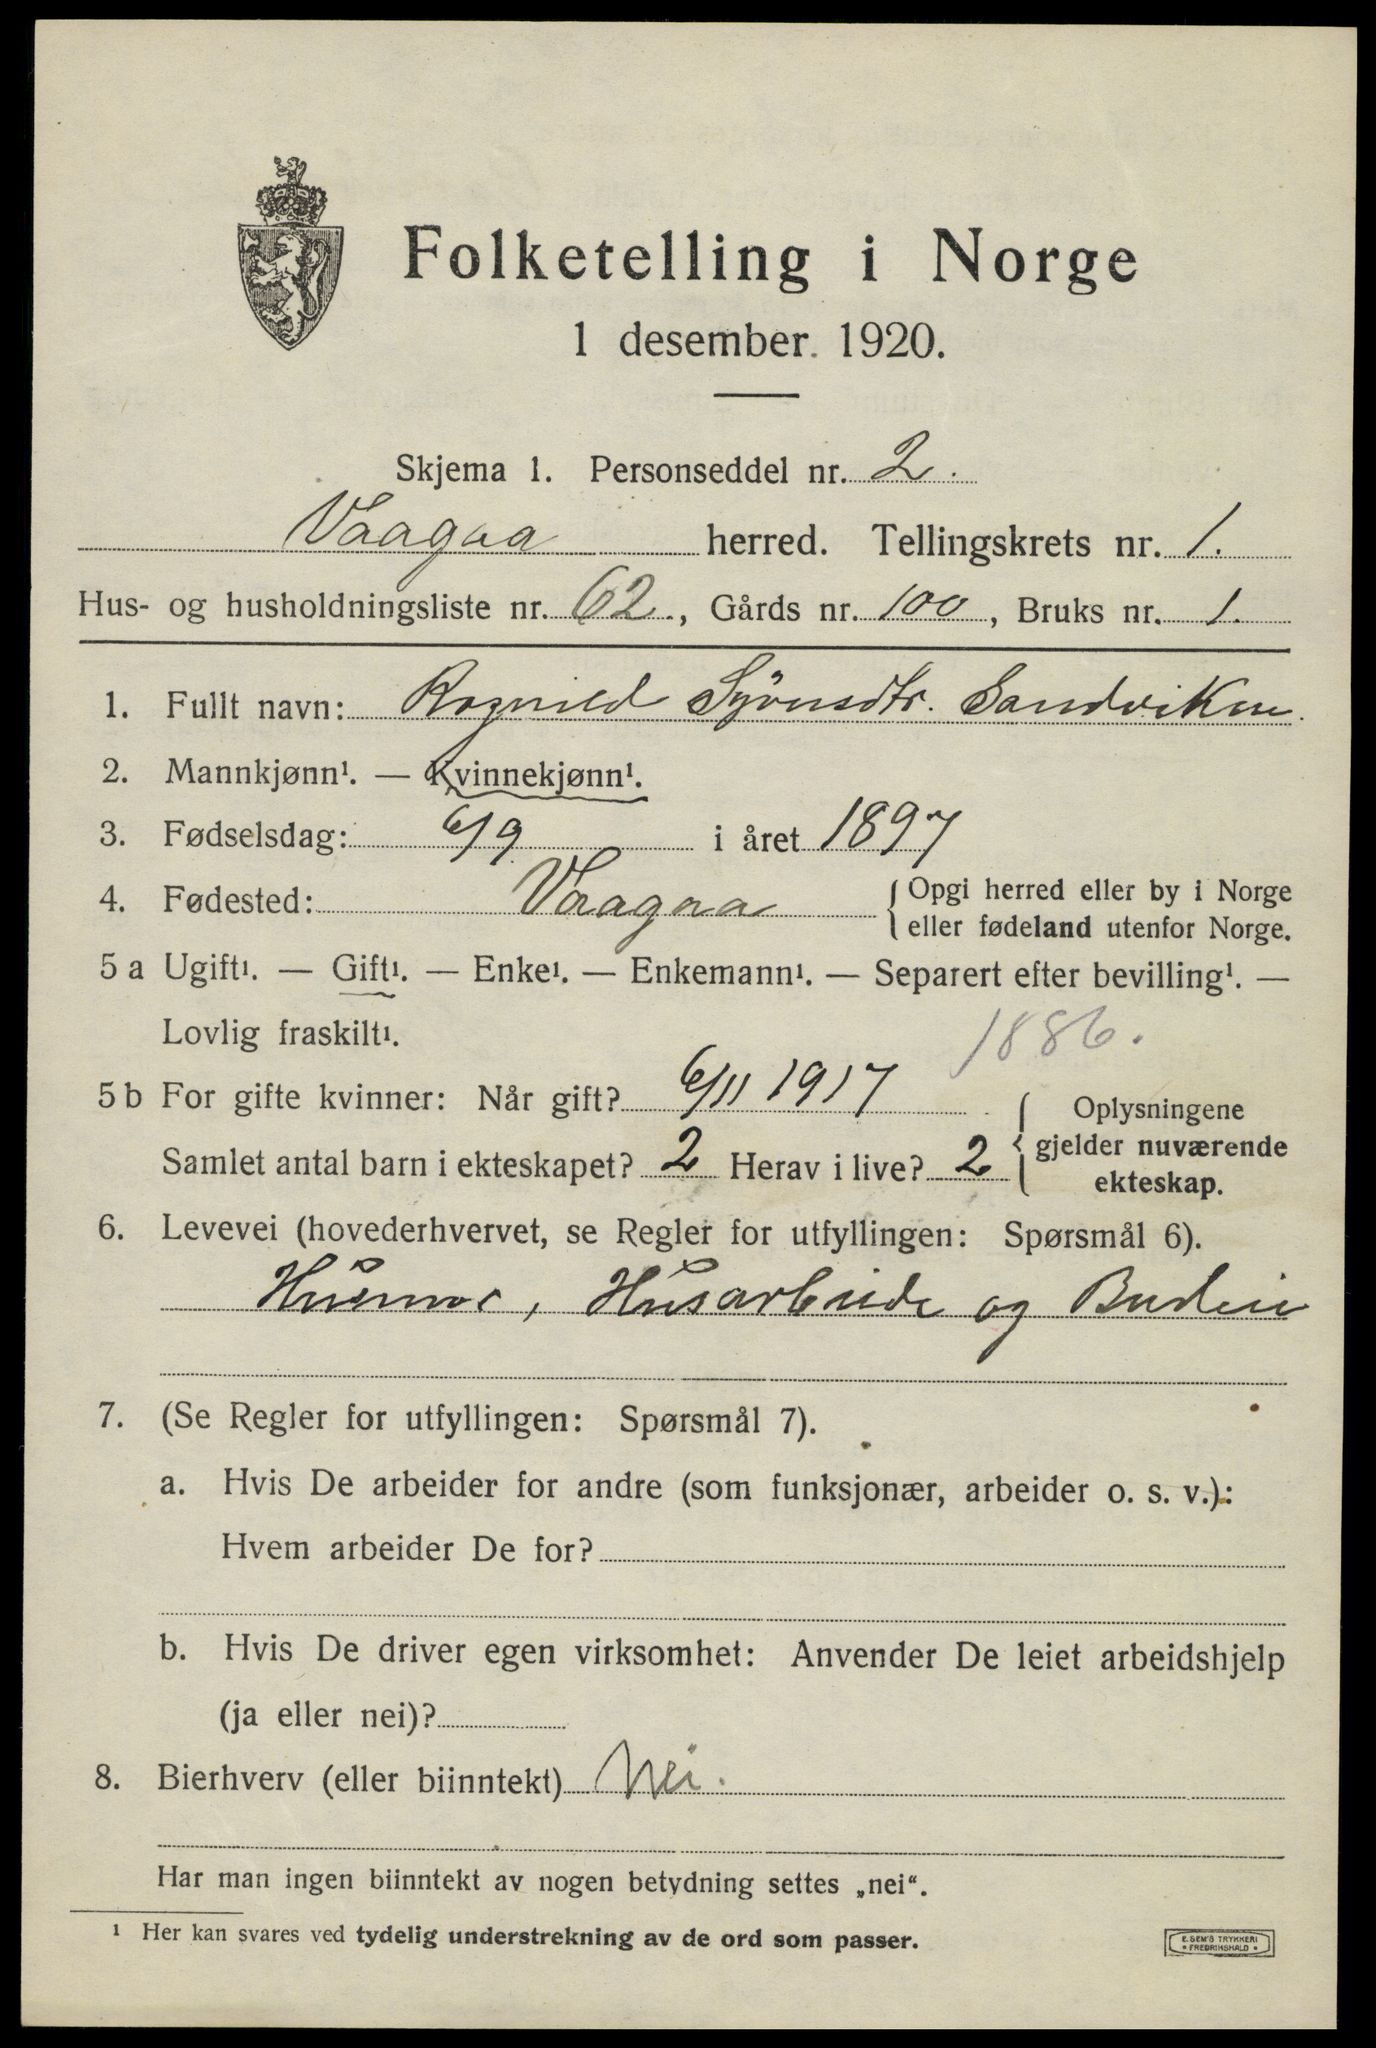 Folketelling i Norge
1 desember 1920.
Skjema 1. Personseddel nr. 2.
Vaagaa herred. Tellingskrets nr. 1.
Hus- og husholdningsliste nr. 62., Gårds nr. 100, Bruks nr. 1.
1. Fullt navn: Ragnild Syversdtr. Sandviken.
2. Mannkjønn¹. — Kvinnekjønn¹.
3. Fødselsdag: 6/9 i året 1897
4. Fødested: Vaagaa { Opgi herred eller by i Norge
eller fødeland utenfor Norge.
5 a Ugift¹. — Gift¹. — Enke¹. — Enkemann¹. — Separert efter bevilling¹. —
Lovlig fraskilt¹.
1886.
5 b For gifte kvinner: Når gift? 6/11 1917
Samlet antal barn i ekteskapet? 2 Herav i live? 2
{ Oplysningene
gjelder nuværende
ekteskap.
6. Levevei (hovederhvervet, se Regler for utfyllingen: Spørsmål 6).
Husmor, Husarbeide og Budeie
7. (Se Regler for utfyllingen: Spørsmål 7).
a. Hvis De arbeider for andre (som funksjonær, arbeider o. s. v.):
Hvem arbeider De for?
b. Hvis De driver egen virksomhet: Anvender De leiet arbeidshjelp
(ja eller nei)?
8. Bierhverv (eller biinntekt) Nei.
Har man ingen biinntekt av nogen betydning settes „nei“.
¹ Her kan svares ved tydelig understrekning av de ord som passer.
E. SEM'S TRYKKERI
• FREDRIKSHALD •